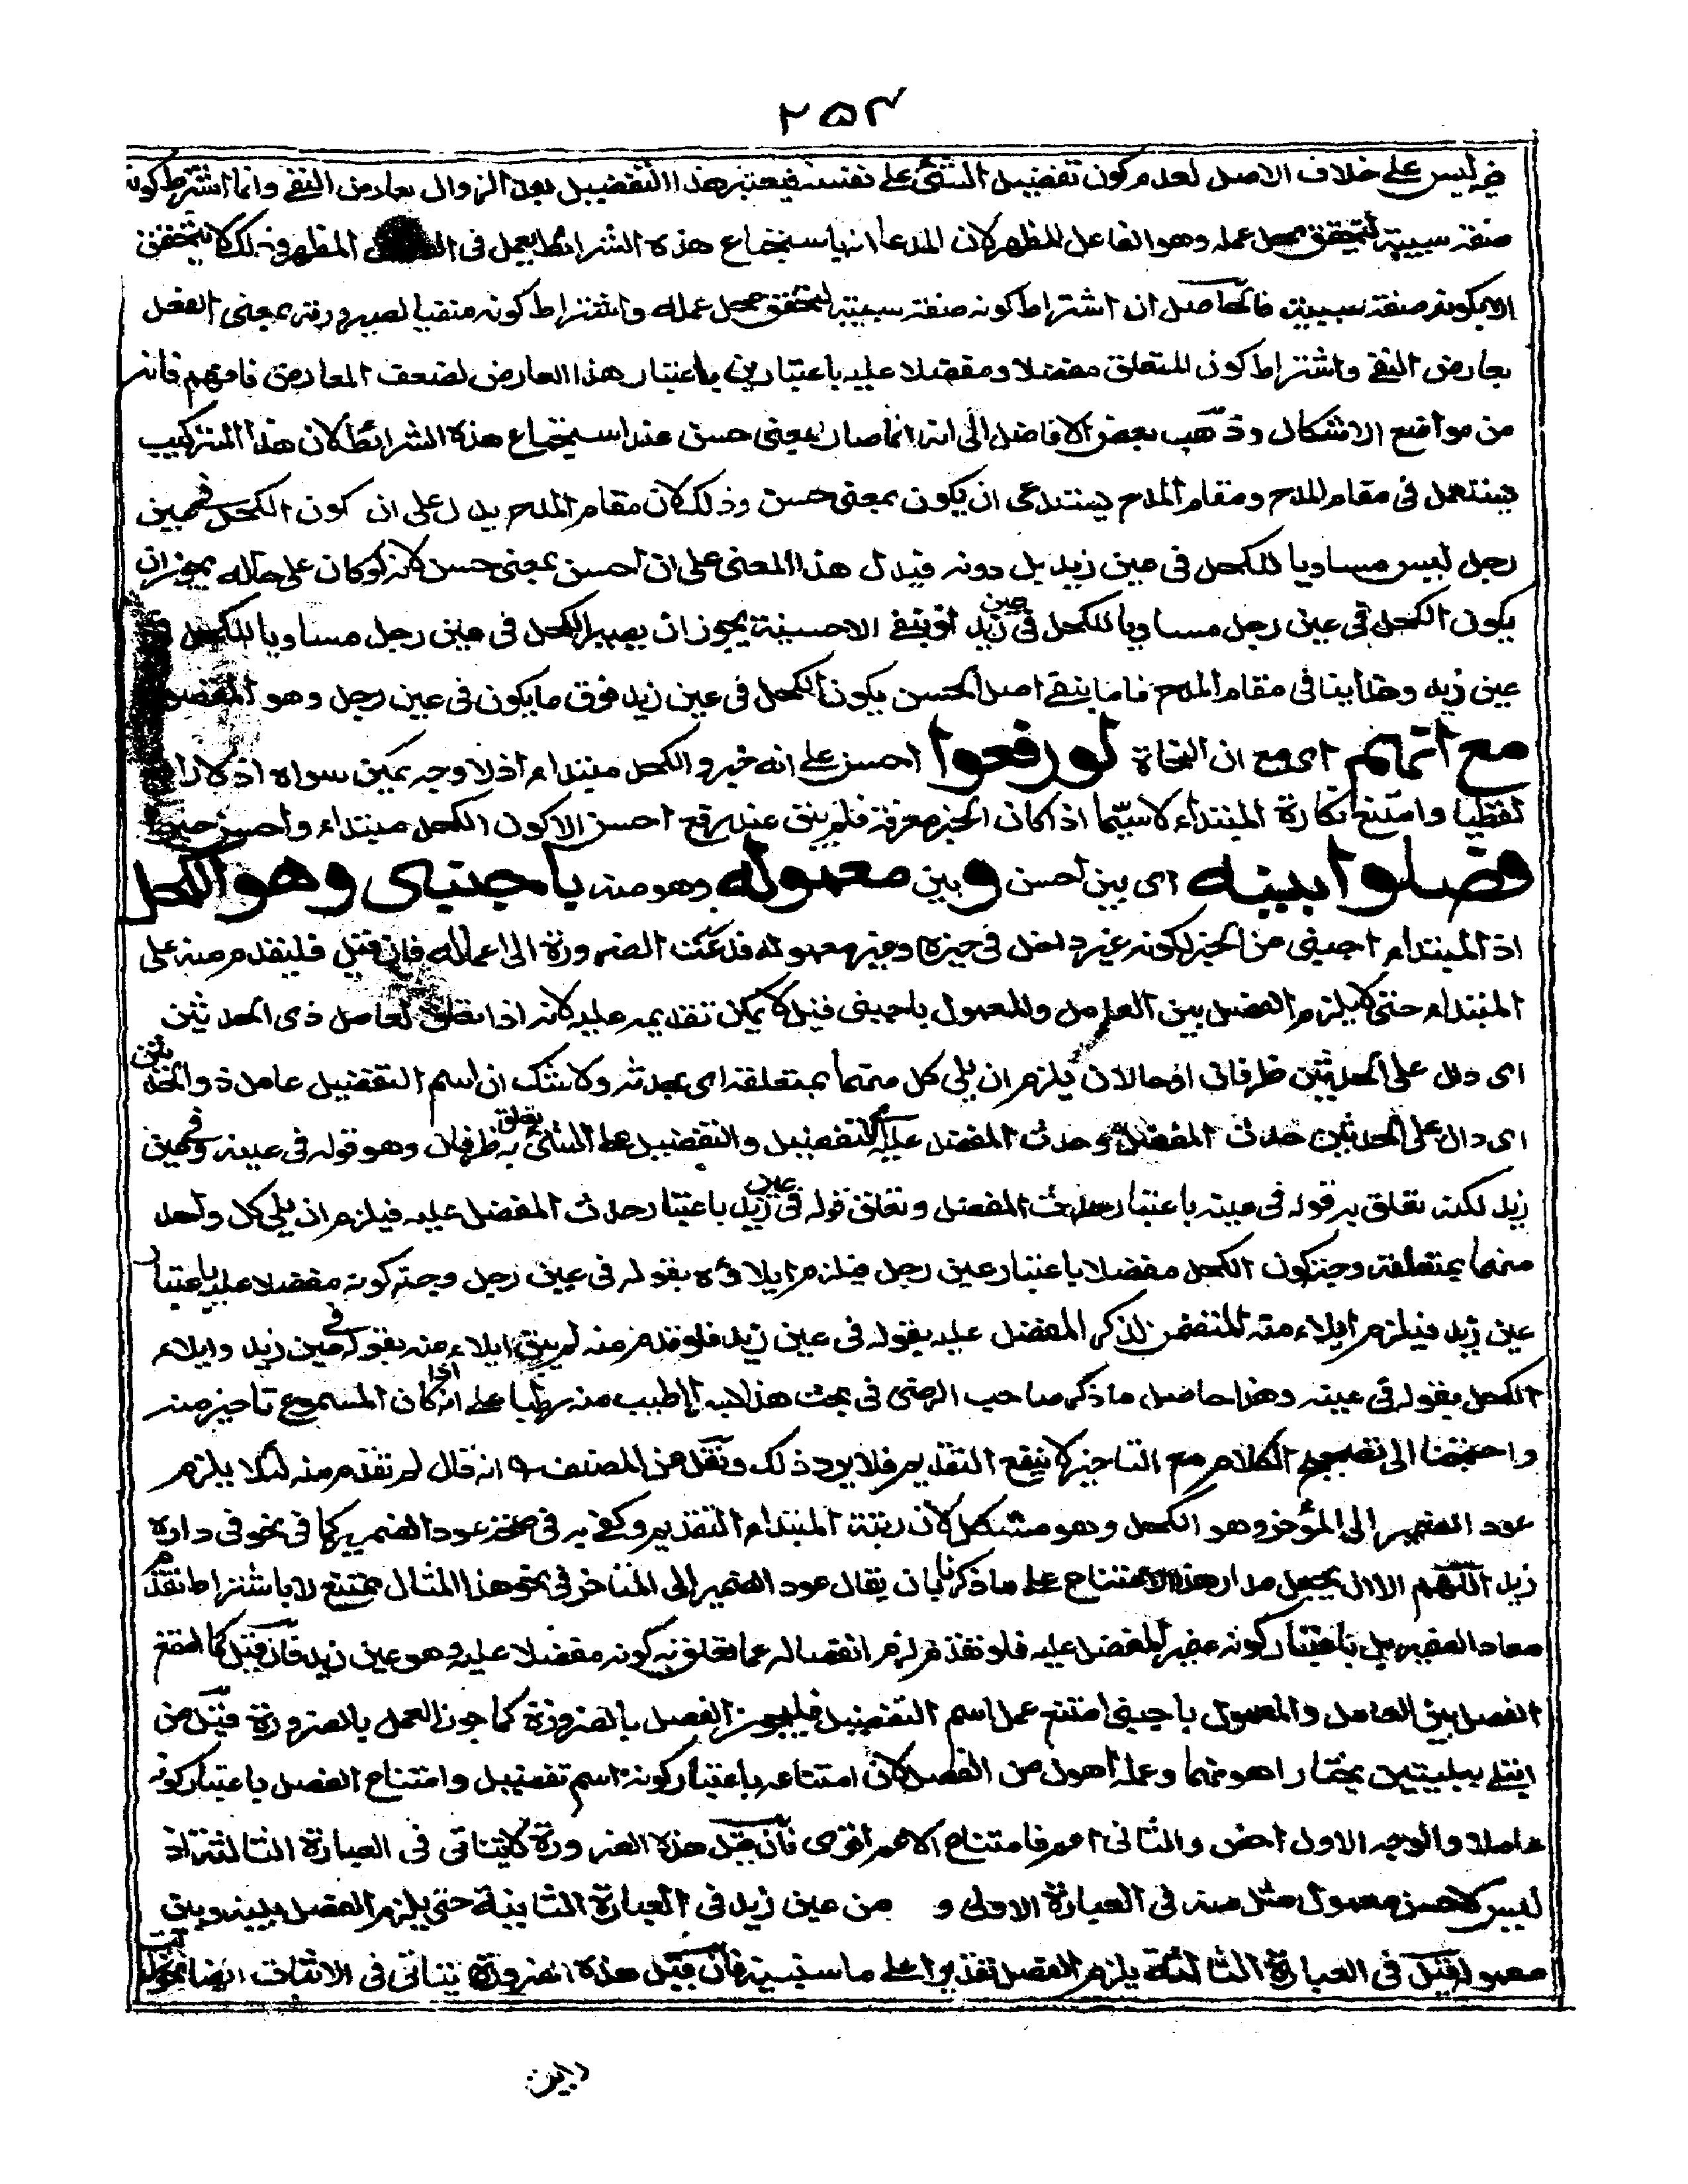 ٢٥٣
ضه ليس على خلاف الاصل لعدم كون تفضيل الشئ على نفسه فيعتبر هذا التفضيل بعد الزوال بعارض النفى وانما اشترط كونه
صفة سببية لتحقق محل عمله وهو الفاعل المظهر لان المدعا انها باستجماع هذه الشرائط يعمل فى المظهر وذلك لا يتحقق
الا بكونه صفة سببية فالحاصل ان اشتراط كونه صفة سببية لتحقق محل عمله واشتراط كونه منفيا لصيرورته بمعنى الفعل
بعارض النفى واشتراط كون المتعلق مفضلا ومفضلا عليه باعتبارين باعتبار هذا العارض لضعف المعارض فافهم فانه
من مواضع الاشكال وذهب بعض الافاضل الى انه انما صار بمعنى حسن عند استجماع هذه الشرائط لان هذا التركيب
يستعمل فى مقام المدح ومقام المدح يستدعى ان يكون بمعنى حسن وذلك لان مقام المدح يدل على ان كون الكحل فى عين
رجل ليس مساويا للكحل فى عين زيد بل دونه فيدل هذا المعنى على ان احسن بمعنى حسن لانه لو كان على حاله يجوز ان
يكون الكحل فى عين رجل مساويا للكحل فى عين زيد اذ بنفى الاحسنية يجوز ان يصير الكحل فى عين رجل مساويا للكحل فى
عين زيد وهذا ينافى مقام المدح فاما بنفى اصل الحسن يكون الكحل فى عين زيد فوق ما يكون فى عين رجل وهو المقصود
مع انهم اى مع ان النحاة لو رفعوا احسن على انه خبر والكحل مبتداء اذ لا وجه يمكن سواه اذ كان
لفظيا وامتنع نكارة المبتداء لاسيما اذا كان الخبر معرفة فلم يبق عند رفع احسن الا كون الكحل مبتداء واحسن خبره
فصلوا بينه اى بين احسن وبين معموله وهو منه باجنبى وهو الكحل
اذ المبتداء اجنبى من الخبر لكونه غير داخل فى حيزه وغير معموله فدعت الضرورة الى اعماله فان قيل فليقدم منه على
المبتداء حتى لا يلزم الفصل بين العامل والمعمول باجنبى قيل لا يمكن تقديمه عليه لانه اذا تعلق لعامل ذى الحدثين
اى دال على الحدثين ظرفان او حالان يلزم ان يلى كل منهما بمتعلقه اى بحدثه ولا شك ان اسم التفضيل عامل ذو الحدثين
اى دال على الحدثين حدث المفضل وحدث المفضل عليه التفضيل والتفضيل على الشئ تعلق به ظرفان وهو قوله فى عينه وفى عين
زيد لكنه تعلق به قوله فى عينه باعتبار حدث المفضل وتعلق قوله فى عين زيد باعتبار حدث المفضل عليه فيلزم ان يلى كل واحد
منهما بمتعلقه وجهة كون الكحل مفضلا باعتبار عين رجل فيلزم ايلاؤه بقوله فى عين رجل وجهة كونه مفضلا عليه باعتبار
عين زيد فيلزم ايلاء منه المتضمن لذكر المفضل عليه بقوله فى عين زيد فلو قدم منه لم يبق ايلاء منه بقوله فى عين زيد وايلاء
الكحل بقوله فى عينه وهذا حاصل ما ذكره صاحب الرضى فى بحث هذا بسرا اطيب منه رطبا على انه اذا كان المسموع تاخير منه
واحتجنا الى تصحيح الكلام مع التاخير لا ينفع التقديم فلا يرد ذلك ونقل من المصنف رح انه قال لم تقدم منه لئلا يلزم
عود الضمير الى المؤخر وهو الكحل وهو مشكل لان رتبة المبتداء التقديم وكفى به فى صحة عود الضمير كما فى نحو فى داره
زيد اللهم الا ان يجعل مدار هذا الامتناع على ما ذكرنا بان يقال عود الضمير الى المتاخر فى نحو هذا المثال ممتنع لا باشتراط تقدم
معاد الضمير بل باعتبار كونه ضمير المفضل عليه فلو تقدم لزم انفصاله عما تعلق به كونه مفضلا عليه وهو عين زيد فان قيل كما امتنع
الفصل بين العامل والمعمول باجنبى امتنع عمل اسم التفضيل فليجوز الفصل بالضرورة كما جوز العمل بالضرورة قيل من
ابتلى ببليتين يختار اهونهما وعمله اهون من الفصل لان امتناعه باعتبار كونه اسم تفضيل وامتناع الفصل باعتبار كونه
عاملا والوجه الاول اخص والثانى اعم فامتناع الاعم اقوى فان قيل هذه الضرورة لا يتاتى فى العبارة الثالثة اذ
ليس لاحسن معمول مثل منه فى العبارة الاولى و من عين زيد فى العبارة الثانية حتى يلزم الفصل بينه وبين
معموله قيل فى العبارة الثالثة يلزم الفصل تقديرا على ما سنبينه فان قيل هذه الضرورة يتاتى فى الاثبات ايضا نحو